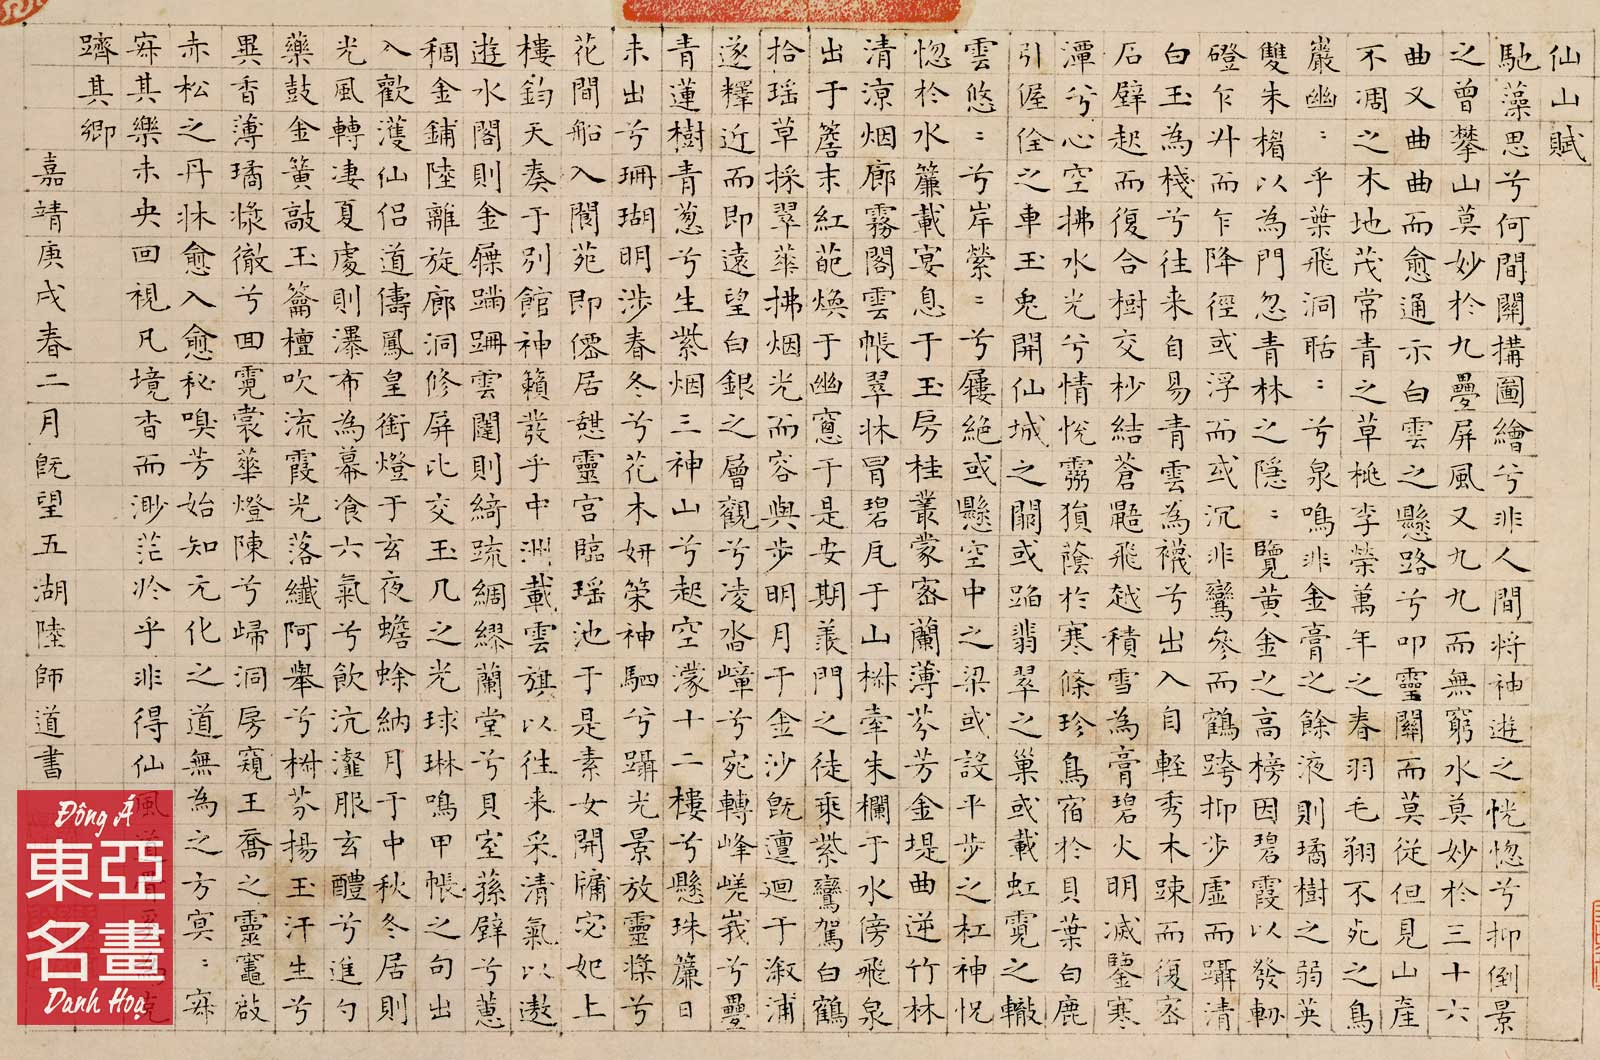 仙山賦
馳藻思兮何間關構圖繪兮非人間將神遊之恍惚兮抑倒景
之曾攀山莫妙於九疊屏風又九九而無窮水莫妙於三十六
曲又曲曲而愈通示白雲之懸路兮叩靈關而莫從但見山產
不凋之木地茂常青之草桃李榮萬年之春羽毛翔不死之鳥
巖幽：乎葉飛洞聒：兮泉鳴非金膏之餘液則璚樹之弱英
雙朱楣以為門忽青林之隱：覽黃金之高榜因碧霞以發軔
磴乍升而乍降徑或浮而或沉非鸞參而鶴跨抑步虛而躡清
白玉為棧兮往来自易青雲為襪兮出入自輕秀木踈而復密
石壁起而復合樹交杪結蒼鼯飛越積雪為膏碧火明滅鑒寒
潭兮心空拂水光兮情悅霧蔭於寒條珍鳥宿於貝葉白鹿
引偓佺之車玉兎開仙城之關或蹈翡翠之巢或載虹霓之轍
雲悠：兮岸縈：兮屐絕或懸空中之梁或設平步之杠神怳
惚於水簾載宴息于玉房桂叢蒙密蘭薄芬芳金堤曲逆竹林
清涼烟廊霧閣雲帳翠牀冒碧瓦于山椒牽朱欄于水傍飛泉
出于簷末紅葩煥于幽窓于是安期羨門之徒乘紫鸞駕白鶴
拾瑶草採翠華拂烟光而容與步明月于金沙旣邅迴于溆浦
遂釋近而即遠望白銀之層觀兮凌沓嶂兮宛轉峰嵯峩兮疊
青蓮樹青葱兮生紫烟三神山兮起空濛十二樓兮懸珠簾日
未出兮珊瑚明涉春冬兮花木妍榮神駟兮躡光景放靈槳兮
花間船入閬苑即僊居憇靈宮臨瑶池于是素女開牗宓妃上
樓鈞天奏于別館神籟發乎中洲載雲旗以徃来采清氣以遨
遊水閣則金鏁蹣跚雲闥則綺疏綢繆蘭堂兮貝室蓀壁兮蕙
稠金鋪陸離旋廊洞修屏比交玉几之光球琳鳴甲帳之句出
入歡濩仙侣道儔鳳皇銜燈于玄夜蟾蜍納月于中秋冬居則
光風轉淒夏處則瀑布為幕飡六氣兮飲沆瀣服玄醴兮進勺
藥鼓金簧敲玉籥檀吹流霞光落纖阿舉兮椒芬揚玉汗生兮
異香薄璚漿徹兮回霓裳華燈陳兮歸洞房窺王喬之靈竈啟
赤松之丹牀愈入愈秘嗅芳始知元化之道無為之方寞：寂
寂其樂未央回視凡境杳而渺茫於乎非得仙風道骨
躋其鄉
嘉靖庚戌春二月旣望五湖陸師道書
Đông Á
東亞
名畫
Danh Hoạ